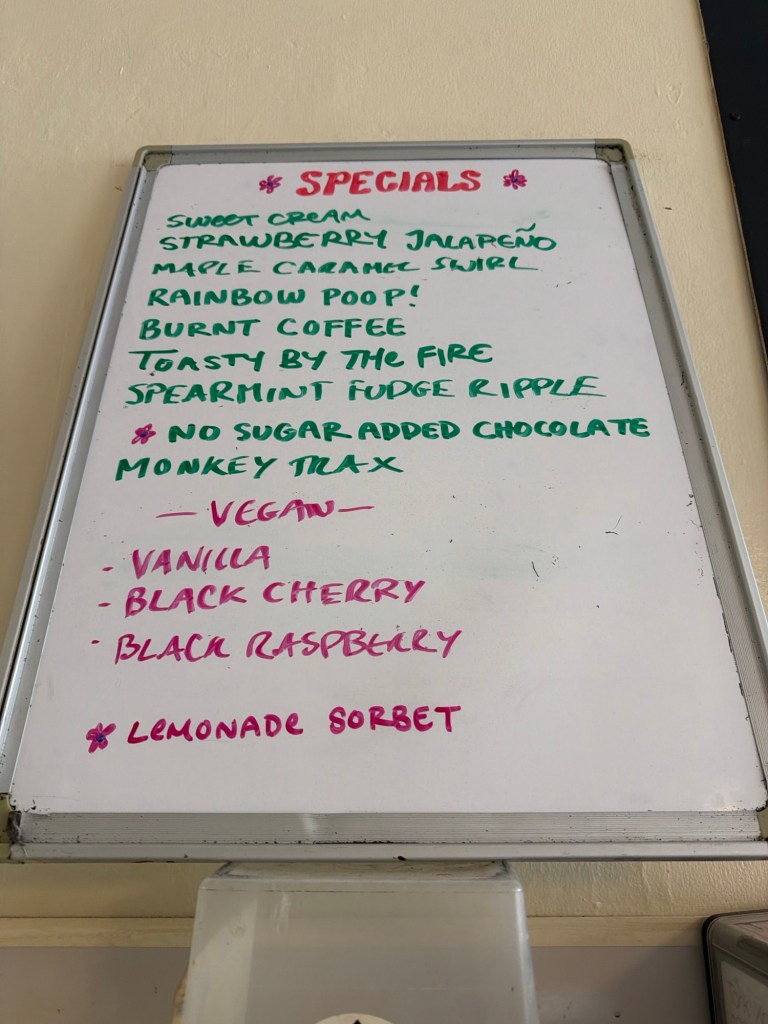 SPECIALS
SWEET CREAM
STRAWBERRY JALAPEÑO
MAPLE CARAMEL SWIRL
RAINBOW POOP!
BURNT COFFEE
TOASTY BY THE FIRE
SPEARMINT FUDGE RIPPLE
NO SUGAR ADDED CHOCOLATE
MONKEY TRAX
— VEGAN —
- VANILLA
- BLACK CHERRY
- BLACK RASPBERRY
LEMONADE SORBET